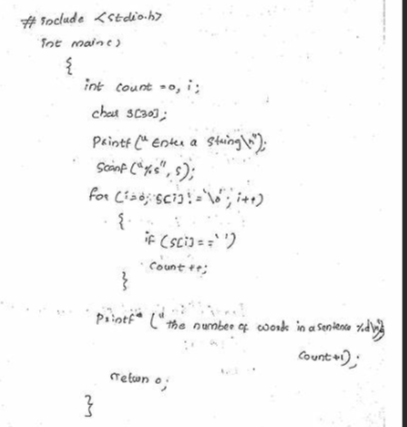 # include <stdio.h>
int main()
{
int count =0, i;
char s[30];
Printf ("Enter a string\n");
Scanf ("%s", s);
for (i=0; s[i]!='\0'; i++)
{
if (s[i]==' ')
count ++;
}
Printf ("the number of words in a sentence %d\n",
count+1);
return 0;
}